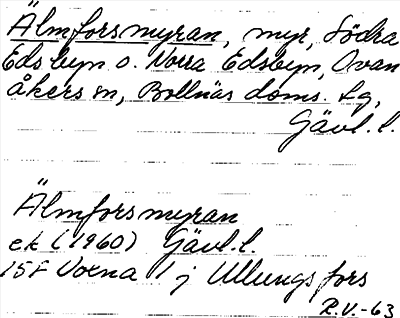 Älmforsmyran, myr, Södra
Edsbyn o. Norra Edsbyn, Ovan
åkers sn, Bollnäs doms. tg,
Gävl. l.
Älmforsmyran
ek (1960) Gävl. l.
15F Voxna j Ullungsfors
R.V.-63